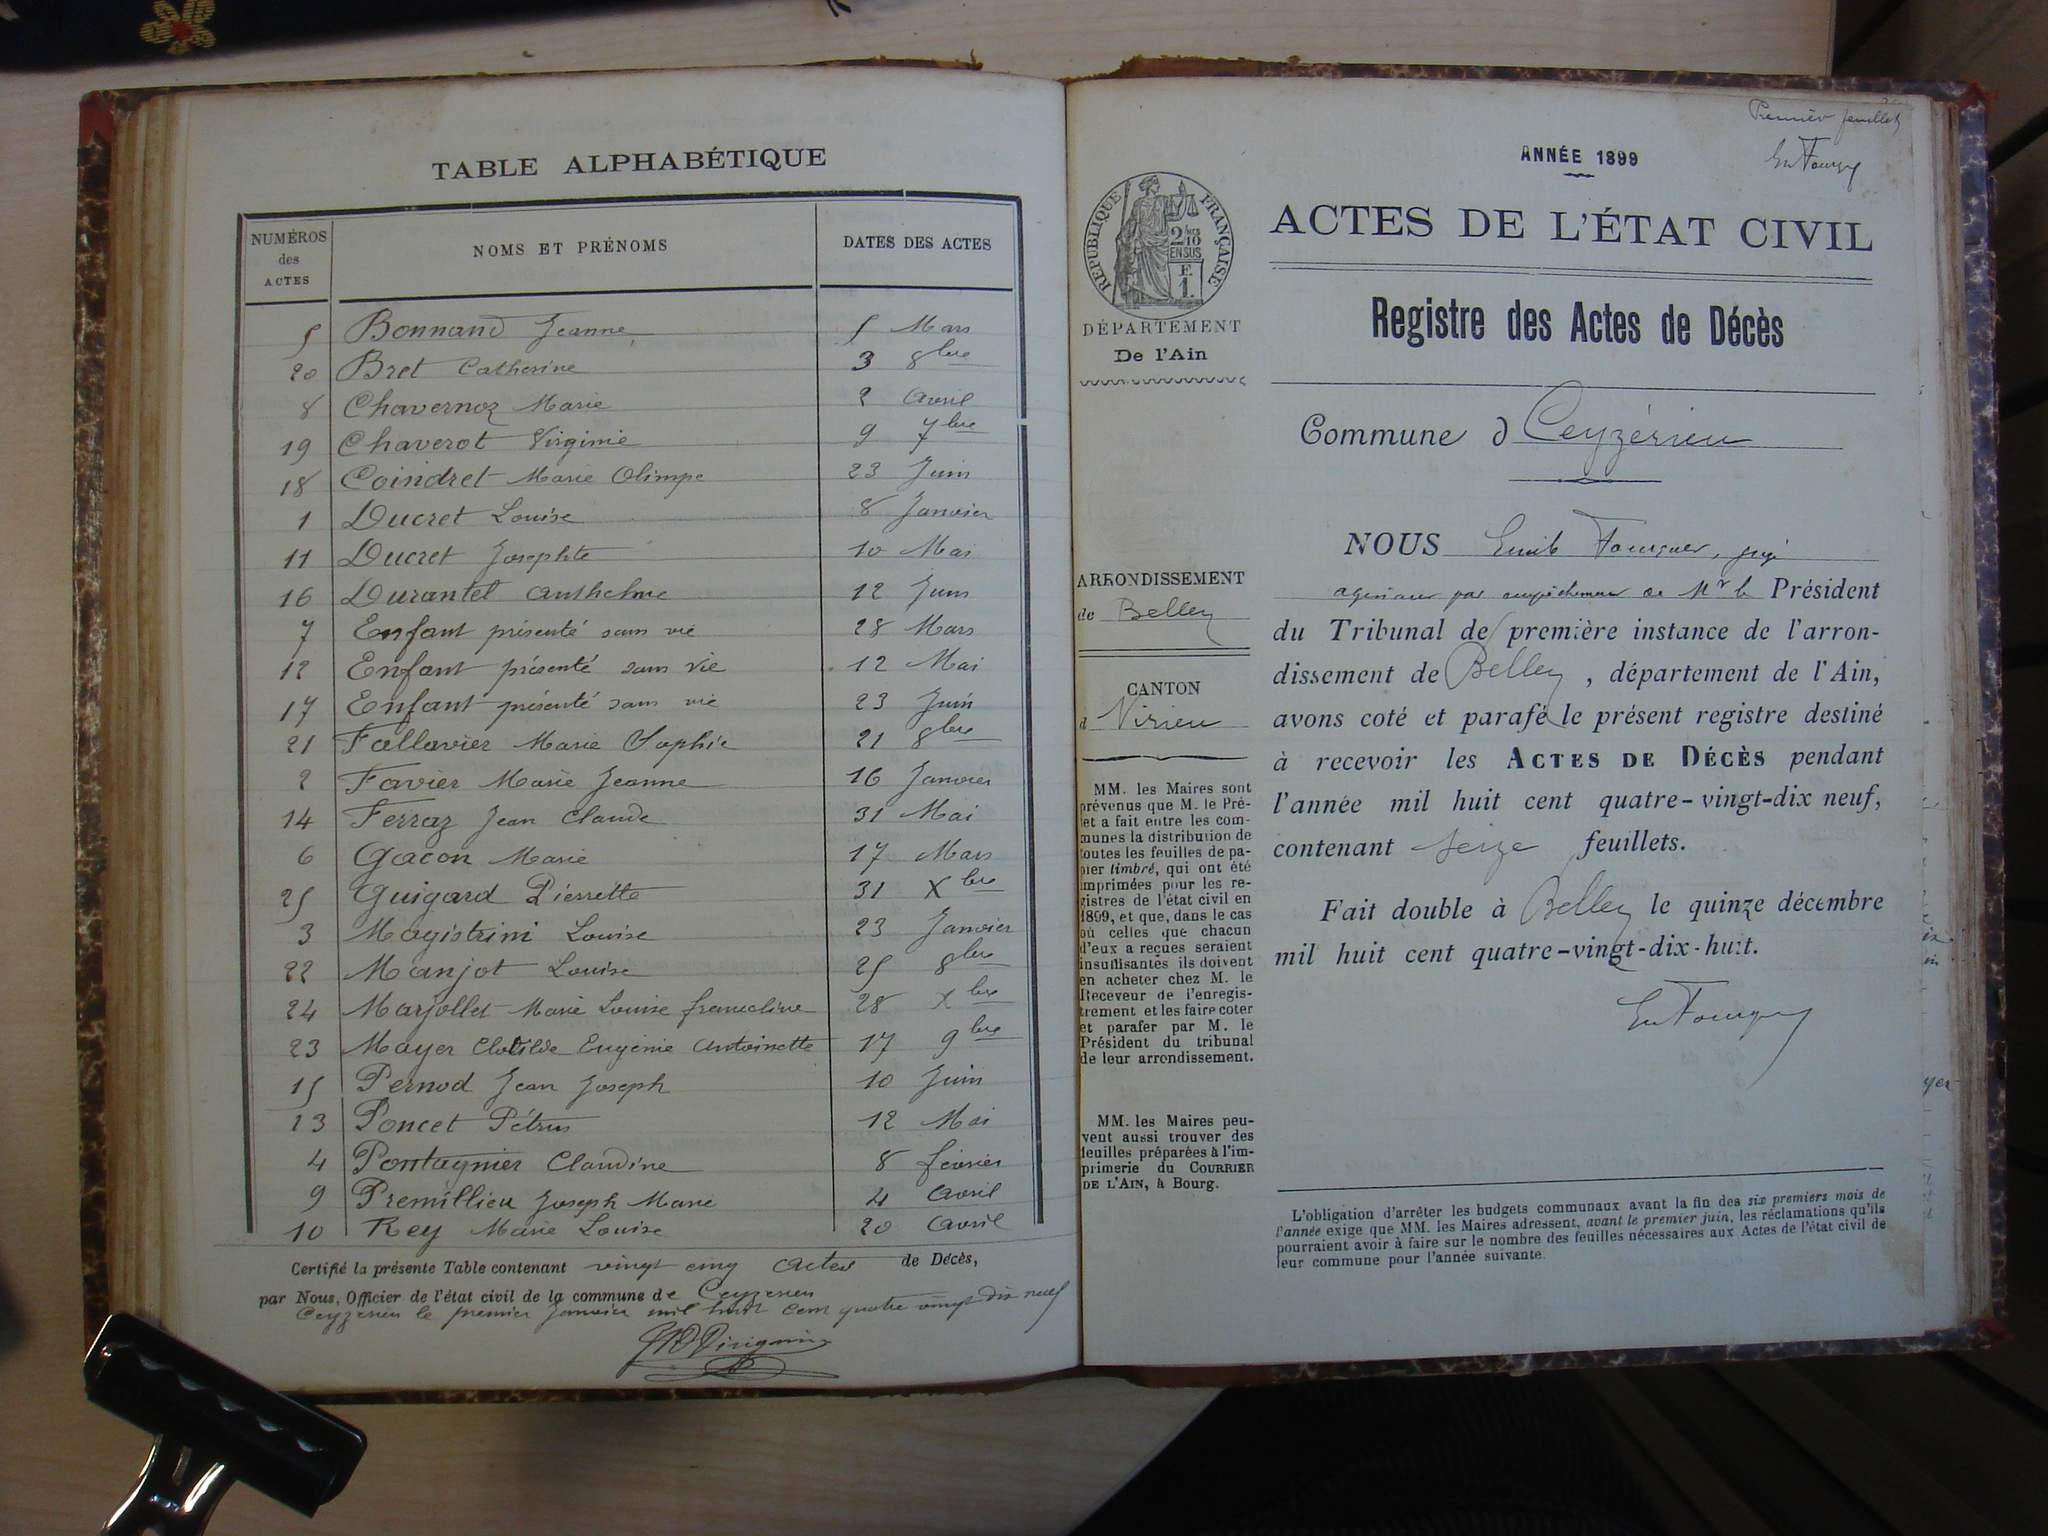 TABLE ALPHABÉTIQUE
NUMÉROS des ACTES | NOMS ET PRÉNOMS | DATES DES ACTES
5 Bonnand Jeanne 5 Mars
20 Bret Catherine 3 8bre
8 Chavernoz Marie 2 Avril
19 Chaverot Virginie 9 7bre
18 Coindret Marie Olimpe 23 Juin
1 Ducret Louise 8 Janvier
11 Ducret Josephte 10 Mai
16 Durantel Anthelme 12 Juin
7 Enfant présenté sans vie 28 Mars
12 Enfant présenté sans vie 12 Mai
17 Enfant présenté sans vie 23 Juin
21 Fallavier Marie Sophie 21 8bre
2 Favier Marie Jeanne 16 Janvier
14 Ferraz Jean Claude 31 Mai
6 Gacon Marie 17 Mars
25 Guigard Pierrette 31 Xbre
3 Magistrini Louise 23 Janvier
22 Manjot Louise 25 8bre
24 Marjollet Marie Louise francline 28 Xbre
23 Mayer Clotilde Eugénie Antoinette 17 9bre
15 Pernod Jean Joseph 10 Juin
13 Poncet Pétrus 12 Mai
4 Pontagnier Claudine 8 février
9 Premillieu Joseph Marie 4 Avril
10 Rey Marie Louise 20 Avril
Certifié la présente Table contenant vingt cinq Actes de Décès,
par Nous, Officier de l'état civil de la commune de Ceyzerieu
Ceyzerieu le premier Janvier mil huit cent quatre vingt dix neuf
Premier feuillet
ANNÉE 1899
RÉPUBLIQUE FRANÇAISE
2/10 EN SUS
E.
1.
ACTES DE L'ÉTAT CIVIL
DÉPARTEMENT
De l'Ain
Registre des Actes de Décès
Commune d Ceyzérieu
ARRONDISSEMENT
de Belley
CANTON
d Virieu
MM. les Maires sont
prévenus que M. le Pré-
fet a fait entre les com-
munes la distribution de
toutes les feuilles de pa-
pier timbré, qui ont été
imprimées pour les re-
gistres de l'état civil en
1899, et que, dans le cas
où celles que chacun
d'eux a reçues seraient
insuffisantes ils doivent
en acheter chez M. le
Receveur de l'enregis-
trement et les faire coter
et parafer par M. le
Président du tribunal
de leur arrondissement.
MM. les Maires peu-
vent aussi trouver des
feuilles préparées à l'im-
primerie du COURRIER
DE L'AIN, à Bourg.
NOUS Emile juge
par empêchement de Mr le Président
du Tribunal de première instance de l'arron-
dissement de Belley, département de l'Ain,
avons coté et parafé le présent registre destiné
à recevoir les ACTES DE DÉCÈS pendant
l'année mil huit cent quatre-vingt-dix neuf,
contenant seize feuillets.
Fait double à Belley le quinze décembre
mil huit cent quatre-vingt-dix-huit.
L'obligation d'arrêter les budgets communaux avant la fin des six premiers mois de
l'année exige que MM. les Maires adressent, avant le premier juin, les réclamations qu'ils
pourraient avoir à faire sur le nombre des feuilles nécessaires aux Actes de l'état civil de
leur commune pour l'année suivante.